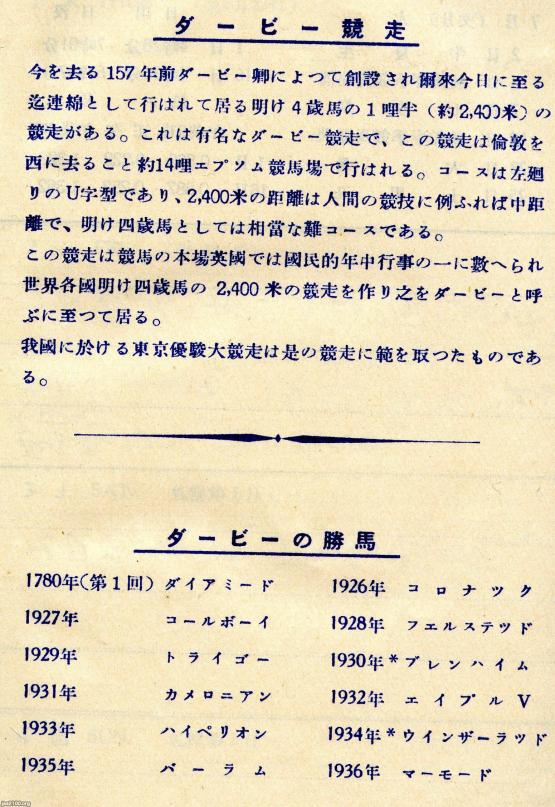 ダービー競走
今を去る157年前ダービー卿によつて創設され爾來今日に至る
迄連綿として行はれて居る明け4歳馬の1哩半（約2,400米）の
競走がある。これは有名なダービー競走で、この競走は倫敦を
西に去ること約14哩エプソム競馬場で行はれる。コースは左廻
りのU字型であり、2,400米の距離は人間の競技に例ふれば中距
離で、明け四歳馬としては相當な難コースである。
この競走は競馬の本場英國では國民的年中行事の一に數へられ
世界各國明け四歳馬の 2,400 米の競走を作り之をダービーと呼
ぶに至つて居る。
我國に於ける東京優駿大競走は是の競走に範を取つたものであ
る。
ダービーの勝馬
1780年(第1回) ダイアミード 1926年 コロナツク
1927年 コールボーイ 1928年 フエルステツド
1929年 トライゴー 1930年 *ブレンハイム
1931年 カメロニアン 1932年 エイプルV
1933年 ハイペリオン 1934年 *ウインザーラツド
1935年 バーラム 1936年 マーモード
jaa2100.org